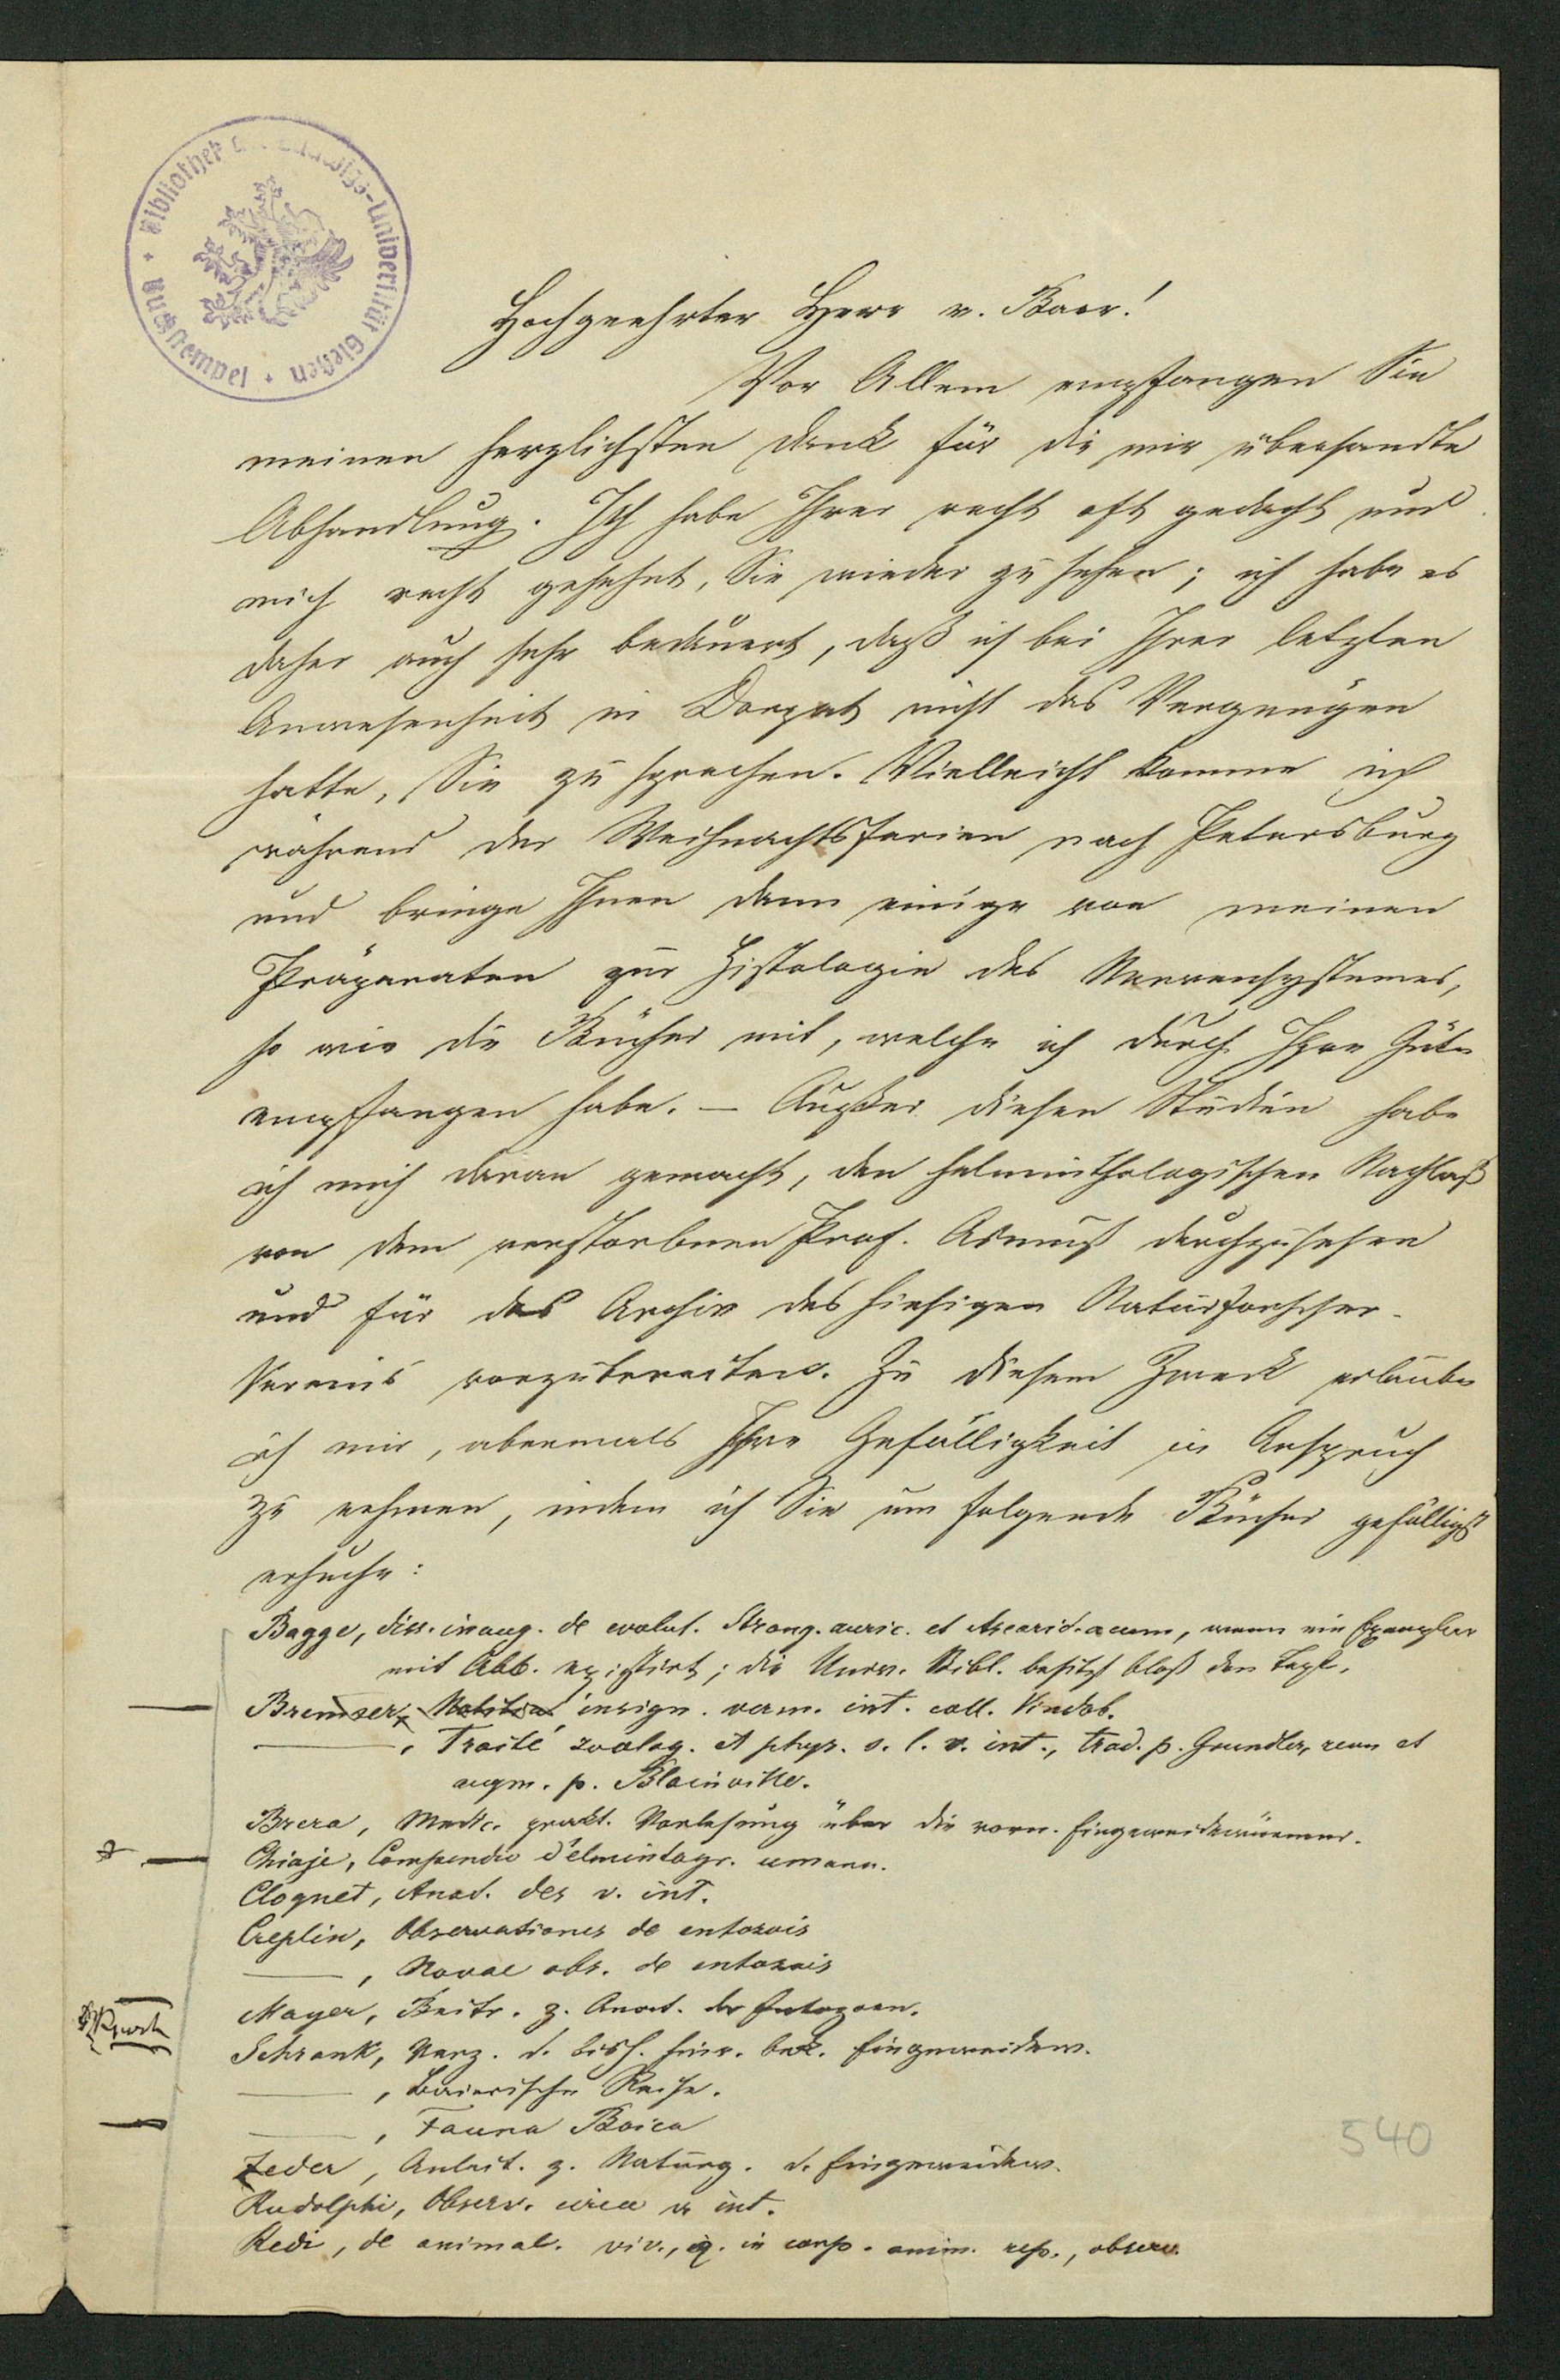 Bibliothek d. Ludwigs-Universität Gießen
Buchstempel
Hochgeehrter Herr v. Baer!
Vor Allem empfangen Sie
meinen herzlichsten Dank für die mir übersandte
Abhandlung. Ich habe Ihrer recht oft gedacht und
mich recht gesehnt, Sie wieder zu sehen; ich habe es
daher auch sehr bedauert, daß ich bei Ihrer letzten
Anwesenheit in Dorpat nicht das Vergnügen
hatte, Sie zu sprechen. Vielleicht komme ich
während der Weihnachtsferien nach Petersburg
und bringe Ihnen dann einige von meinen
Präparaten zur Histologie des Nervensystemes,
so wie die Bücher mit, welche ich durch Ihre Güte
empfangen habe. — Außer diesen Studien habe
ich mich daran gemacht, den helminthologischen Nachlaß
von dem verstorbenen Prof. Asmuß durchzusehen
und für das Archiv des hiesigen Naturforscher-
Vereins vorzubereiten. Zu diesem Zweck erlaube
ich mir, abermals Ihre Gefälligkeit in Anspruch
zu nehmen, indem ich Sie um folgende Bücher gefälligst
ersuche:
Bagge, diss. inaug. de evolut. Strong. auric. et Ascarid. acum, wenn ein Exemplar
mit Abb. existirt; die Univ. Bibl. besitzt bloß den Text.
Bremser, Notitia insign. verm. int. coll. Vindob.
——, Traité zoolog. et phys. s. l. v. int., trad. p. Grundler, revu et
augm. p. Blainville.
Brera, Medic. prakt. Vorlesung über die vorn. Eingeweidewürmer.
Chiaje, Compendio d'elmintogr. umana.
Cloquet, Anat. des v. int.
Creplin, Observationes de entozois
——, Novae obs. de entozois
Mayer, Beitr. z. Anat. der Entozoen.
Schrank, Verz. d. bish. hinr. bek. Eingeweidew.
——, Baierische Reise.
——, Fauna Boica
Zeder, Anleit. z. Naturg. d. Eingeweidew.
Rudolphi, Observ. circa v. int.
Redi, de animal. viv., q. in corp. anim. rep., observ.
540